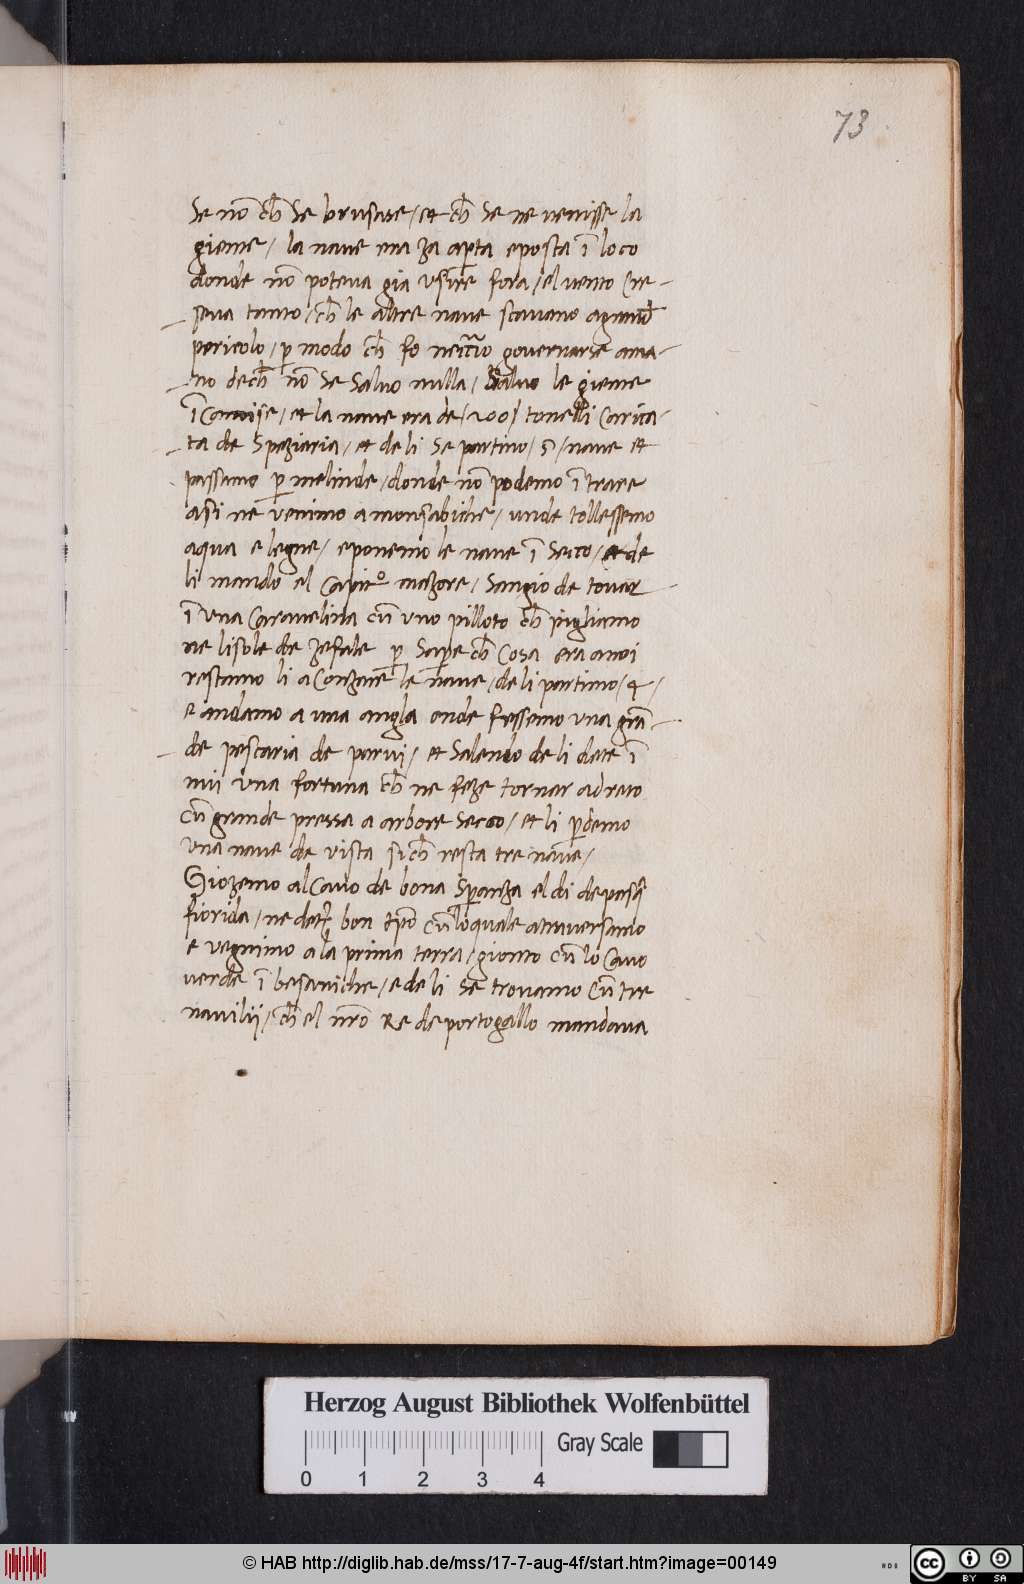 73
Se nō ch̄ se brusase / et ch̄ se ne venisse la
gieme / la nave era za apta e posta ī loco
donde nō poteva gia usire fora / el vento cre-
seva tanto / ch̄ le altre nave stavano a grand
pericolo / p modo ch̄ fo governarse ama-
no dech̄ nō se salvo nulla / salvo le gieme
ī camise / et la nave era de / 200 / tonelli carica-
ta de speziaria / et de li se partimo / 5 / nave et
passamo p melinde / donde nō podemo ī trare
asi ne venimo a monsabiche / unde tollessemo
aqua e legne / e ponemo le nave ī seco / et de
li mando el capito mazore / sangio de tovar
ī una caravelina cū uno pilloto ch̄ pigliamo
ne lisole de zefale p sape ch̄ cosa era a noi
restamo li a conzare le nave / de li partimo / 4 /
e andamo a una angla onde fessemo una grā-
de pescaria de parvi / et salendo de li dete ī
nui una fortuna ch̄ ne feze tornar adreto
cū grande pressa a arbore secco / et li pdemo
una nave de vista sich̄ resta tre nave /
Giozemo al cavo de bona spanza el di de pasq
fiorida / ne dete bon tpō cū lo quale atraversamo
e vegnimo a la prima terra / gionto cū lo cavo
verde ī besaniche / e de li se trovamo cū tre
navilii / ch̄ el nrō Re de portogallo mandava
Herzog August Bibliothek Wolfenbüttel
Gray Scale
0 1 2 3 4
© HAB http://diglib.hab.de/mss/17-7-aug-4f/start.htm?image=00149
cc BY SA